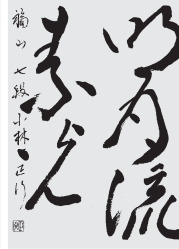 明月流
素光
福山 七段 小林